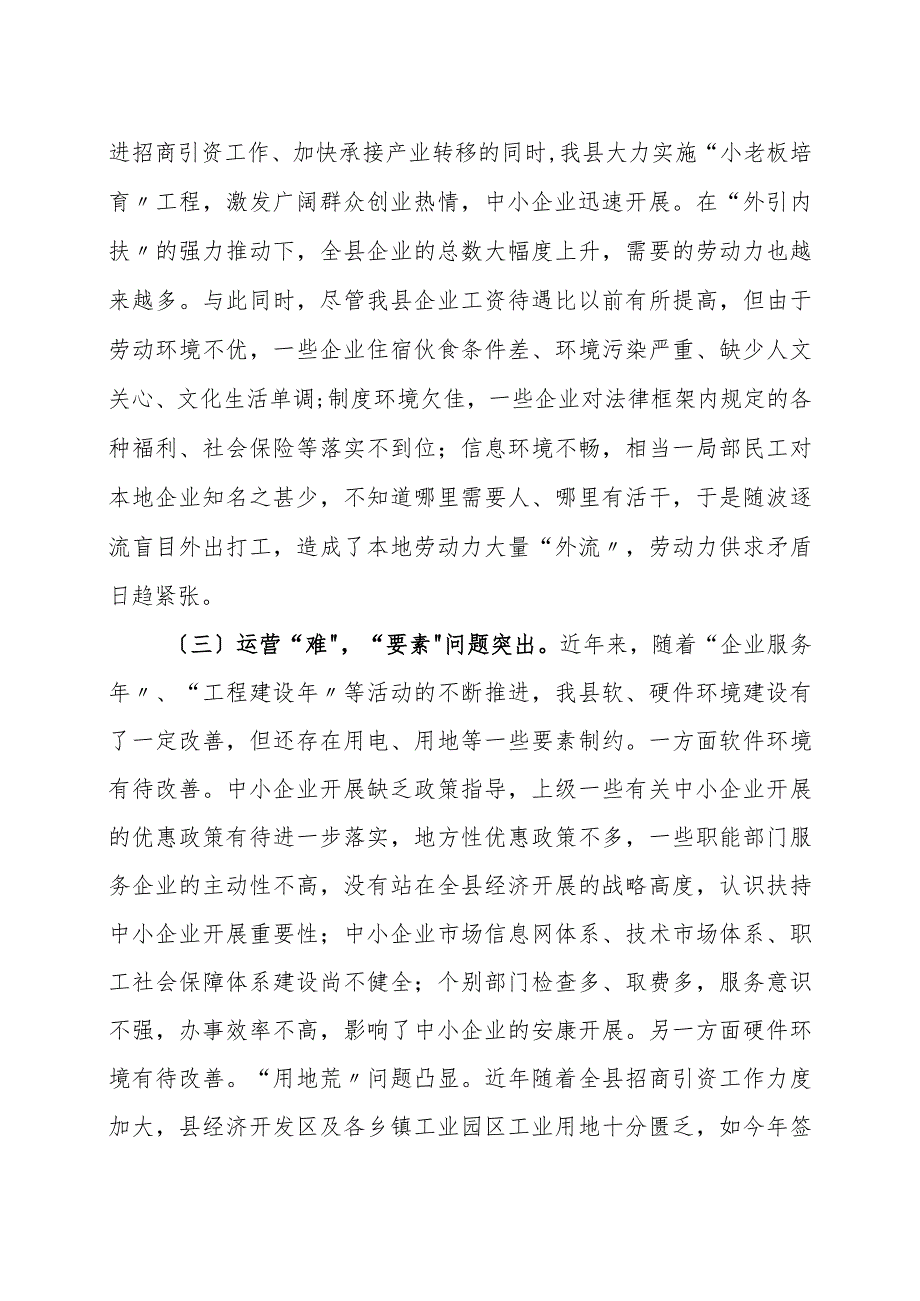 进招商引资工作、加快承接产业转移的同时,我县大力实施“小老板培
育〃工程，激发广阔群众创业热情，中小企业迅速开展。在“外引内
扶〃的强力推动下，全县企业的总数大幅度上升，需要的劳动力也越
来越多。与此同时，尽管我县企业工资待遇比以前有所提高，但由于
劳动环境不优，一些企业住宿伙食条件差、环境污染严重、缺少人文
关心、文化生活单调;制度环境欠佳，一些企业对法律框架内规定的各
种福利、社会保险等落实不到位；信息环境不畅，相当一局部民工对
本地企业知名之甚少，不知道哪里需要人、哪里有活干，于是随波逐
流盲目外出打工，造成了本地劳动力大量“外流〃，劳动力供求矛盾
日趋紧张。
〔三〕运营“难"，“要素"问题突出。近年来，随着“企业服务
年〃、“工程建设年〃等活动的不断推进，我县软、硬件环境建设有
了一定改善，但还存在用电、用地等一些要素制约。一方面软件环境
有待改善。中小企业开展缺乏政策指导，上级一些有关中小企业开展
的优惠政策有待进一步落实，地方性优惠政策不多，一些职能部门服
务企业的主动性不高，没有站在全县经济开展的战略高度，认识扶持
中小企业开展重要性；中小企业市场信息网体系、技术市场体系、职
工社会保障体系建设尚不健全；个别部门检查多、取费多，服务意识
不强，办事效率不高，影响了中小企业的安康开展。另一方面硬件环
境有待改善。“用地荒〃问题凸显。近年随着全县招商引资工作力度
加大，县经济开发区及各乡镇工业园区工业用地十分匮乏，如今年签